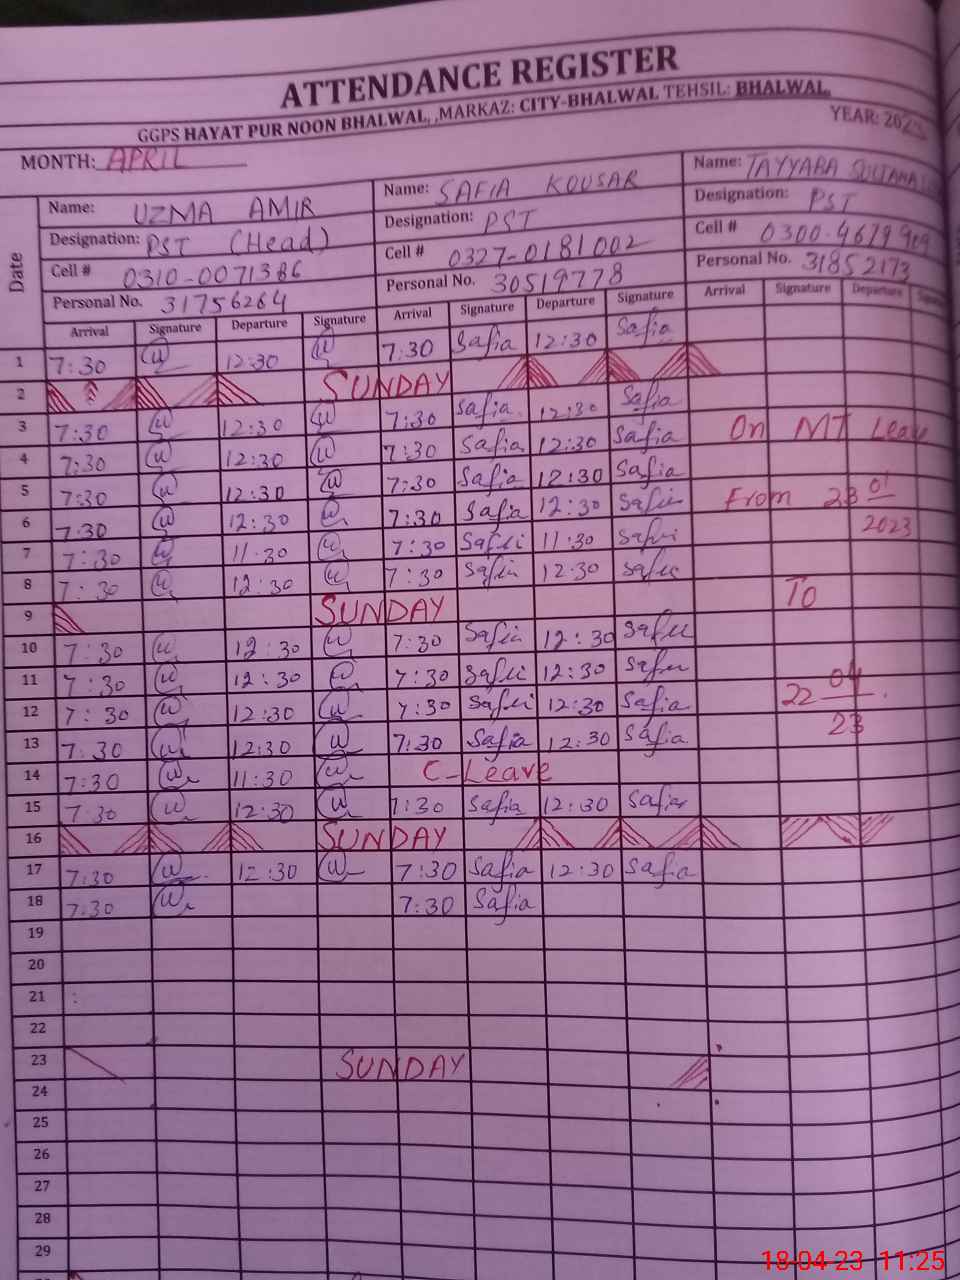 ATTENDANCE REGISTER
GGPS HAYAT PUR NOON BHALWAL, ,MARKAZ: CITY-BHALWAL TEHSIL: BHALWAL,
MONTH: APRIL YEAR: 2023
Date
Name: UZMA AMIR Name: SAFIA KOUSAR Name: TAYYABA SULTANA
Designation: PST (Head) Designation: PST Designation: PST
Cell # 0310-0071386 Cell # 0327-0181002 Cell # 0300-4679909
Personal No. 31756264 Personal No. 30519778 Personal No. 31852173
Arrival Signature Departure Signature Arrival Signature Departure Signature Arrival Signature Departure
1 7:30 12:30 7:30 Safia 12:30 Safia
2 SUNDAY
3 7:30 12:30 7:30 Safia 12:30 Safia
4 7:30 12:30 7:30 Safia 12:30 Safia On MT Leave
5 7:30 12:30 7:30 Safia 12:30 Safia
6 7:30 12:30 7:30 Safia 12:30 Safia From 28 01
7 7:30 11:30 7:30 Safia 11:30 Safia 2023
8 7:30 12:30 7:30 Safia 12:30 Safia
9 SUNDAY To
10 7:30 12:30 7:30 Safia 12:30 Safia
11 7:30 12:30 7:30 Safia 12:30 Safia
12 7:30 12:30 7:30 Safia 12:30 Safia 22 04
13 7:30 12:30 7:30 Safia 12:30 Safia 23
14 7:30 11:30 C-Leave
15 7:30 12:30 7:30 Safia 12:30 Safia
16 SUNDAY
17 7:30 12:30 7:30 Safia 12:30 Safia
18 7:30 7:30 Safia
19
20
21 :
22
23 SUNDAY
24
25
26
27
28
29
18-04-23 11:25